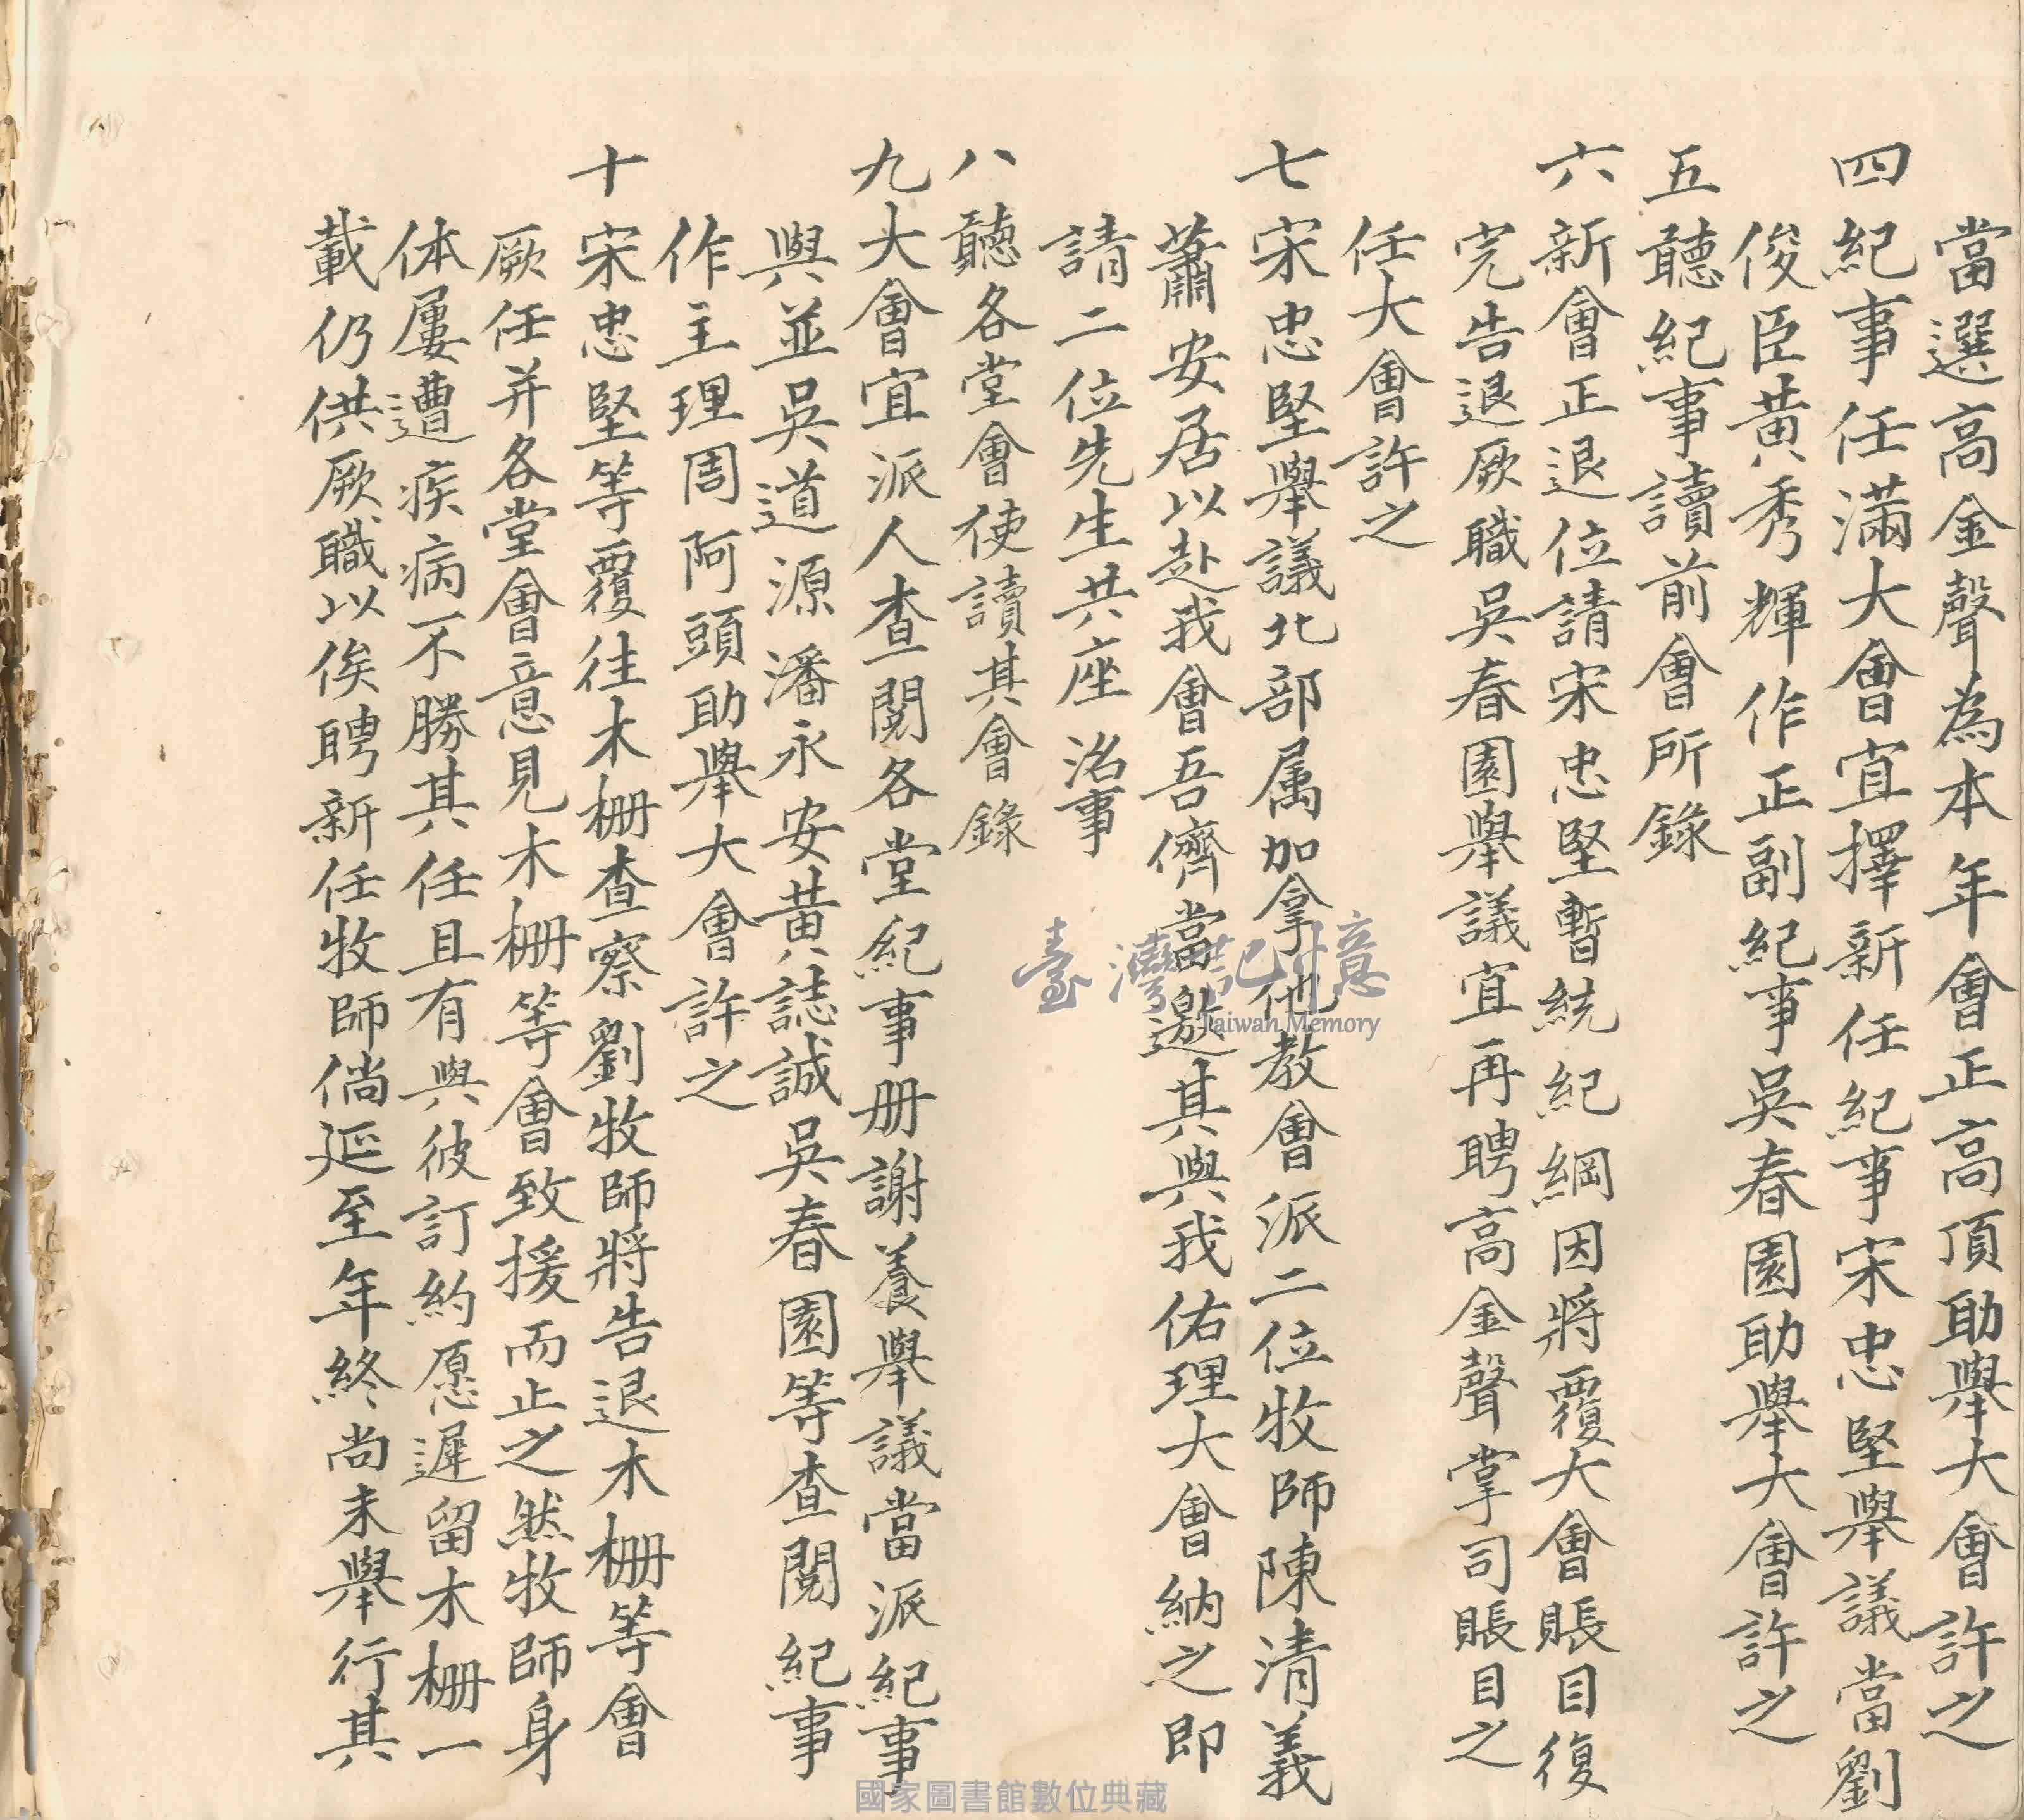 當選高金聲為本年會正高頂助舉大會許之
四紀事任滿大會宜擇新任紀事宋忠堅舉議當劉
俊臣黃秀輝作正副紀事吳春園助舉大會許之
五聽紀事讀前會所錄
六新會正退位請宋忠堅暫統紀綱因將覆大會賬目復
完告退厥職吳春園舉議宜再聘高金聲掌司賬目之
任大會許之
七宋忠堅舉議北部属加拿他教會派二位牧師陳清義
蕭安居以赴我會吾儕當邀其與我佑理大會納之即
請二位先生共座洺事
八聽各堂會使讀其會錄
九大會宜派人查閱各堂紀事册謝養舉議當派紀事
與並吳道源潘永安黃誌誠吳春園等查閱紀事
作主理周阿頭助舉大會許之
十宋忠堅等覆往木柵查察劉牧師將告退木柵等會
厥任并各堂會意見木柵等會致援而止之然牧師身
体屢遭疾病不勝其任且有與彼訂約愿遲留木柵一
載仍供厥職以俟聘新任牧師倘延至年終尚未舉行其
臺灣記憶
Taiwan Memory
國家圖書館數位典藏